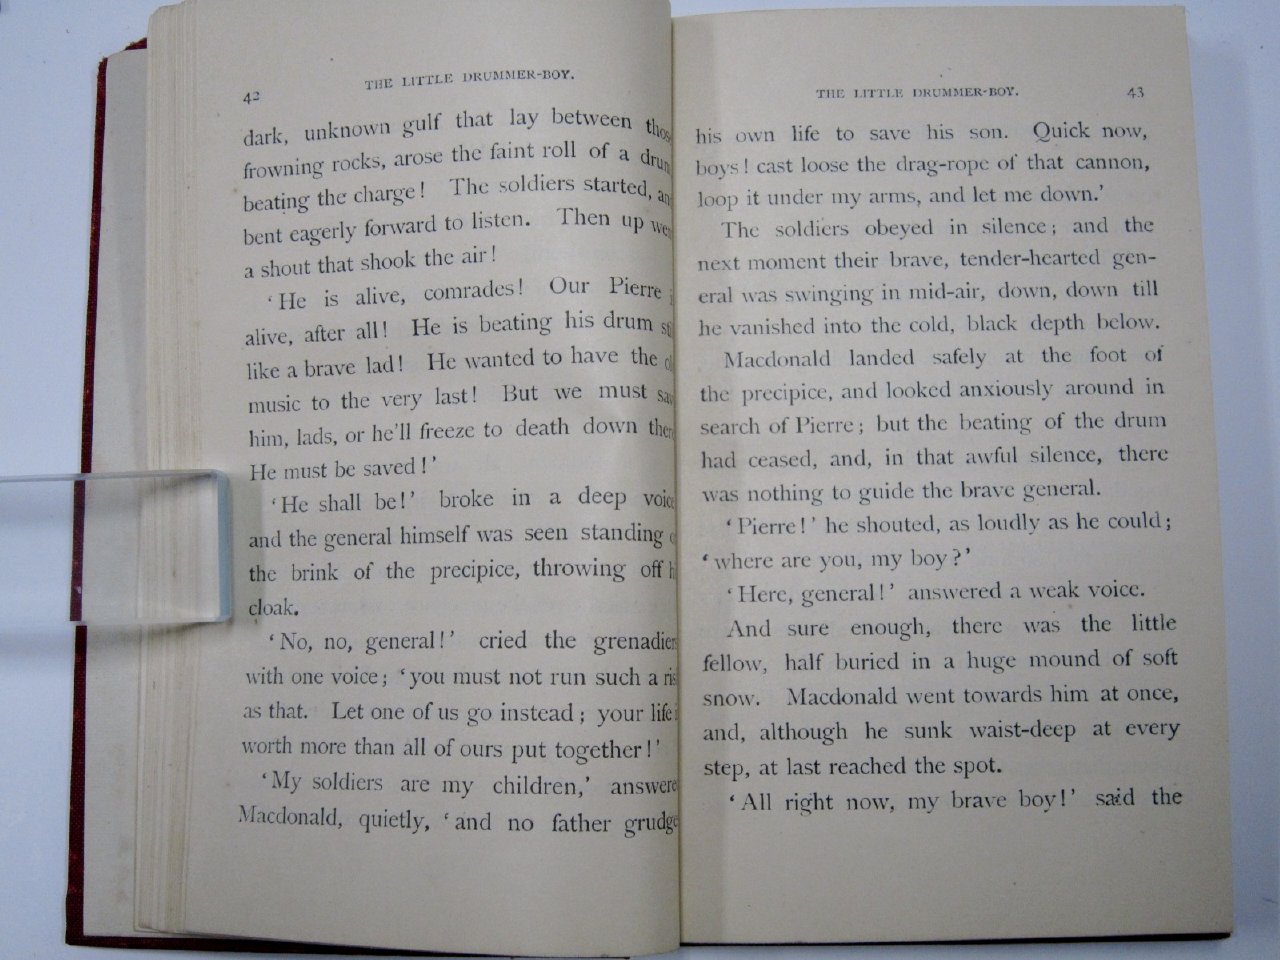 42
THE LITTLE DRUMMER-BOY.
dark, unknown gulf that lay between those
frowning rocks, arose the faint roll of a drum
beating the charge! The soldiers started, an
bent eagerly forward to listen. Then up wen
a shout that shook the air!
'He is alive, comrades! Our Pierre i
alive, after all! He is beating his drum sti
like a brave lad! He wanted to have the ol
music to the very last! But we must sav
him, lads, or he'll freeze to death down ther
He must be saved!'
'He shall be!' broke in a deep voic
and the general himself was seen standing o
the brink of the precipice, throwing off h
cloak.
'No, no, general!' cried the grenadiers
with one voice; 'you must not run such a ris
as that. Let one of us go instead; your life i
worth more than all of ours put together!'
'My soldiers are my children,' answere
Macdonald, quietly, 'and no father grudge
THE LITTLE DRUMMER-BOY.
43
his own life to save his son. Quick now,
boys! cast loose the drag-rope of that cannon,
loop it under my arms, and let me down.'
The soldiers obeyed in silence; and the
next moment their brave, tender-hearted gen-
eral was swinging in mid-air, down, down till
he vanished into the cold, black depth below.
Macdonald landed safely at the foot of
the precipice, and looked anxiously around in
search of Pierre; but the beating of the drum
had ceased, and, in that awful silence, there
was nothing to guide the brave general.
'Pierre!' he shouted, as loudly as he could;
'where are you, my boy?'
'Here, general!' answered a weak voice.
And sure enough, there was the little
fellow, half buried in a huge mound of soft
snow. Macdonald went towards him at once,
and, although he sunk waist-deep at every
step, at last reached the spot.
'All right now, my brave boy!' said the